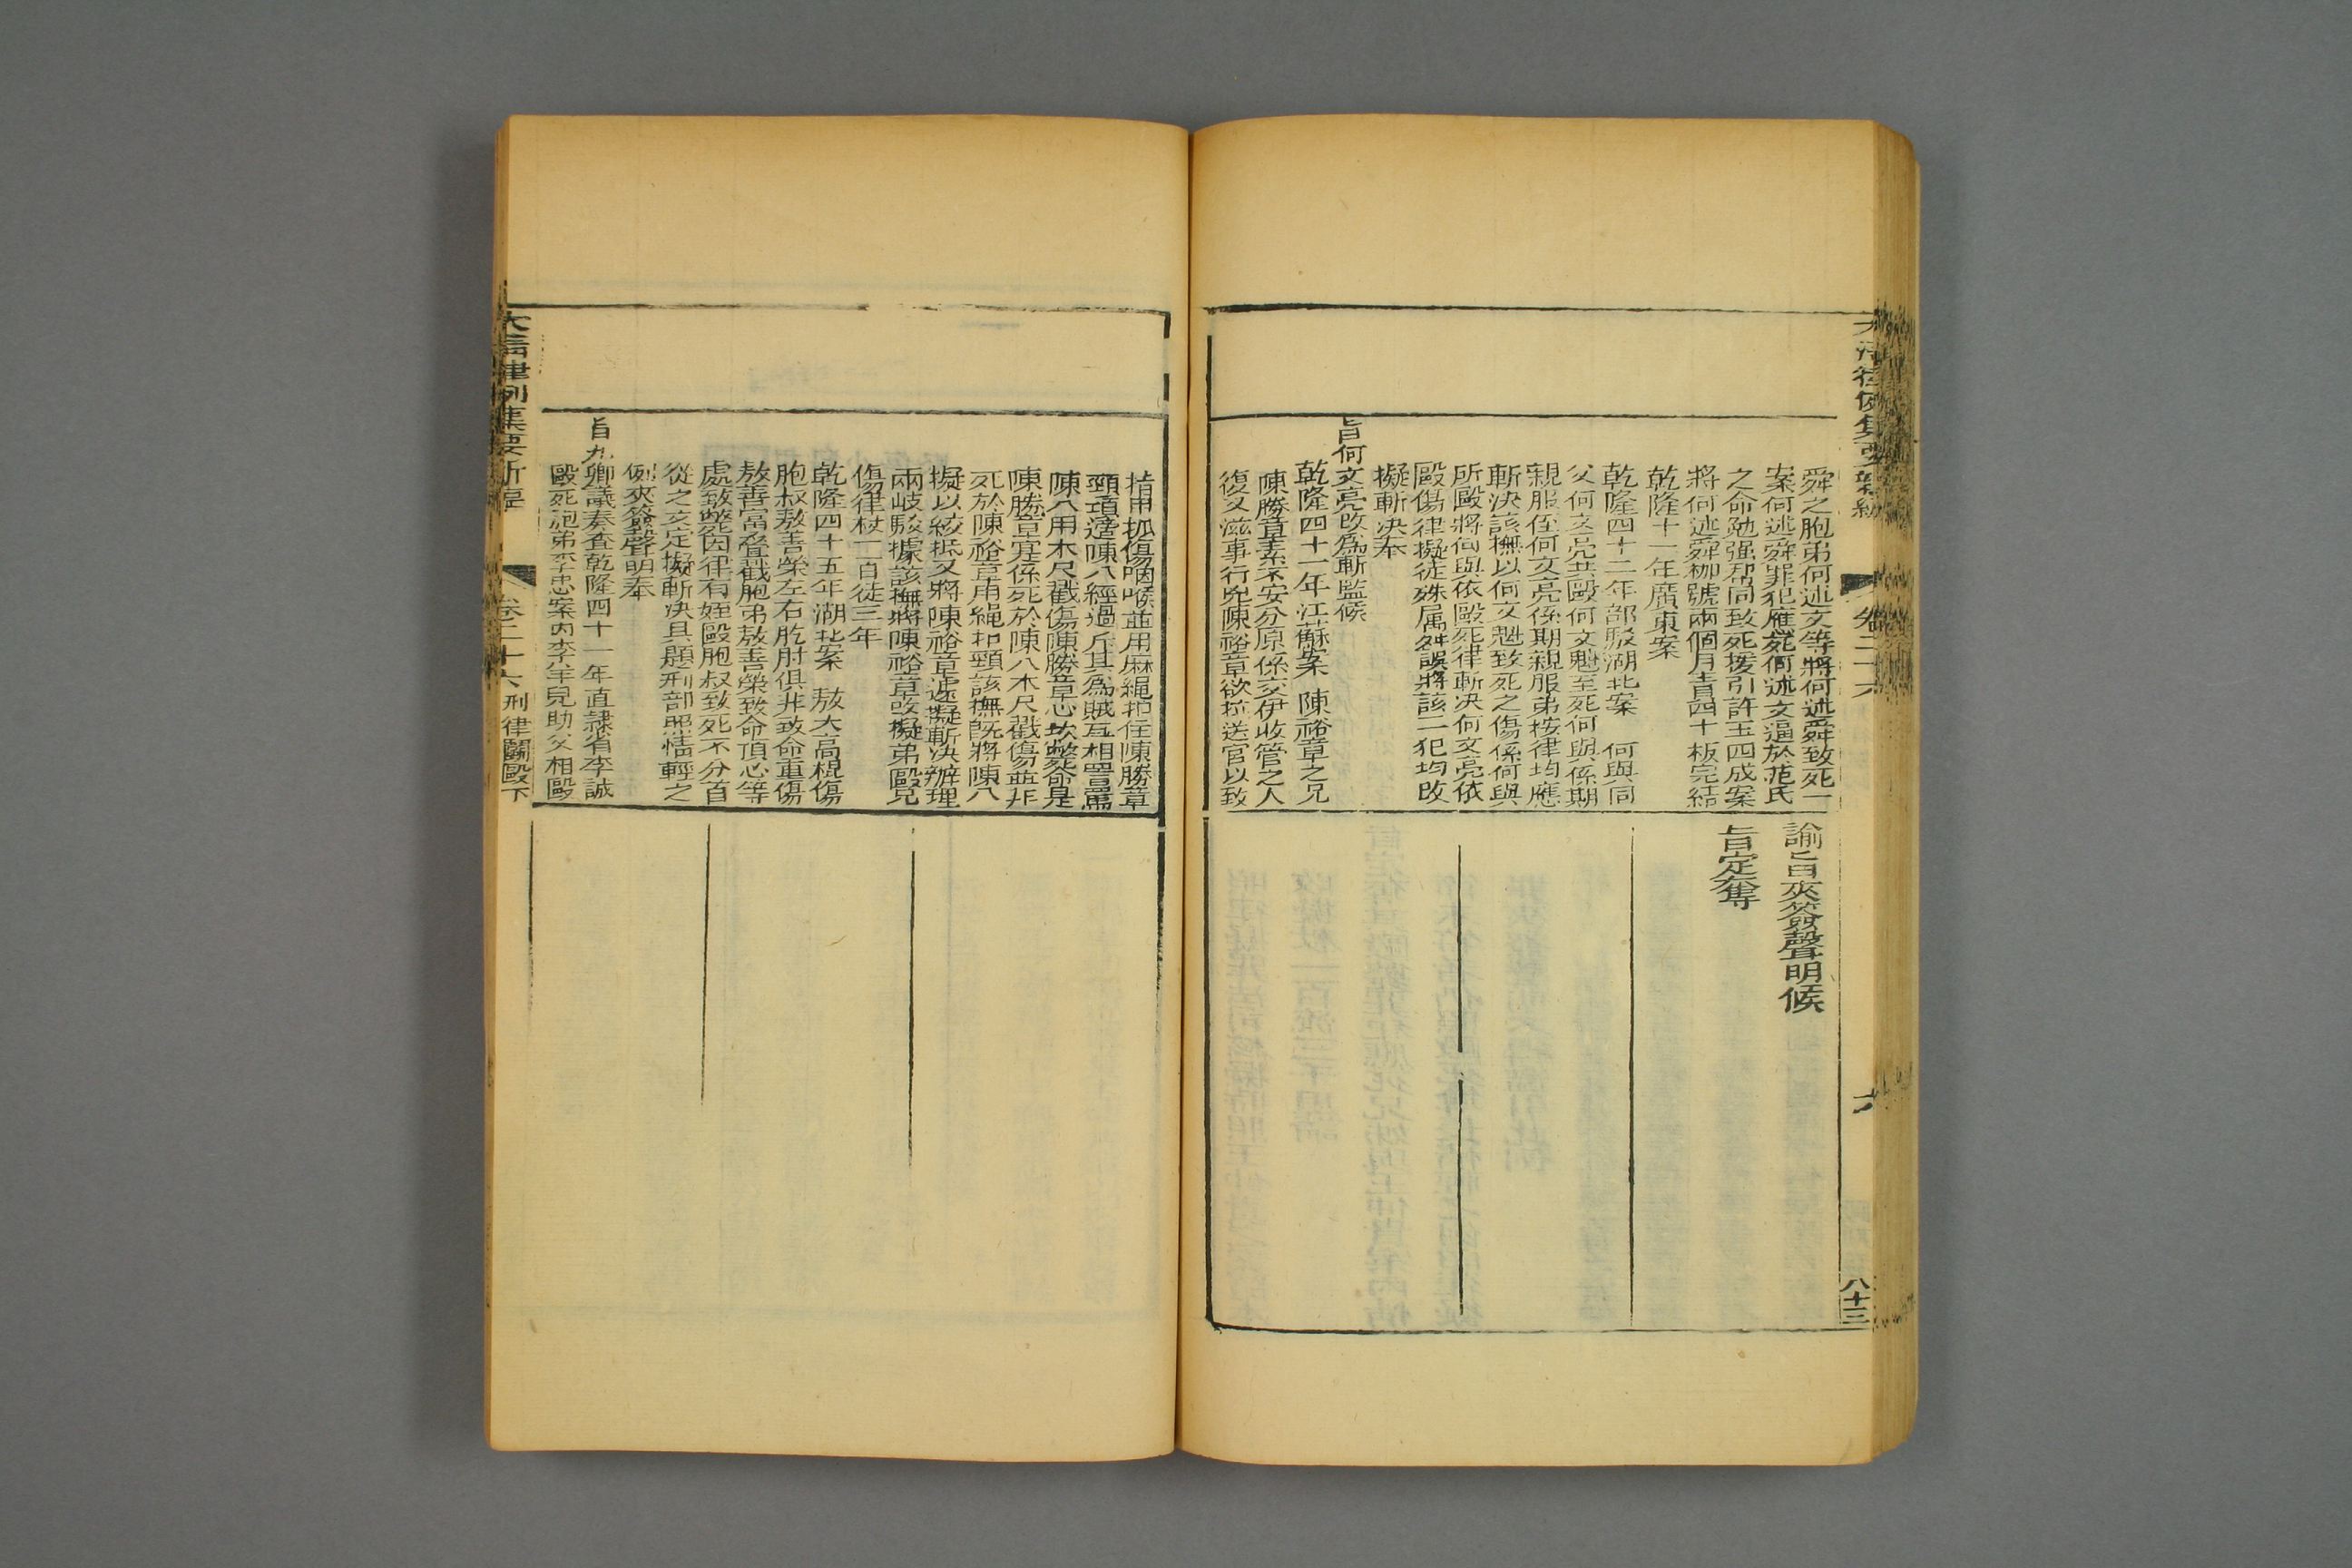 舜之胞弟何述文等將何述舜致死一
案何述舜罪犯應死何述文逼於范氏
之命勉强幫同致死援引許玉四成案
將何述舜枷號兩個月責四十板完結
乾隆十一年廣東案
乾隆四十二年部駁湖北案 何與同
父何文亮共毆何文魁至死何與係期
親服侄何文亮係期親服弟按律均應
斬決該撫以何文魁致死之傷係何與
所毆將何與依毆死律斬决何文亮依
毆傷律擬徒殊属舛誤將該二犯均改
擬斬决奉
旨何文亮改為斬監候
乾隆四十一年江蘇案 陳裕章之兄
陳勝章素不安分原係交伊收管之人
復又滋事行兇陳裕章欲捆送官以致
諭旨夾簽聲明候
旨定奪
八十三
指甲抓傷咽喉並用麻繩扣住陳勝章
頸項適陳八經過斥其為賊互相詈罵
陳八用木尺戳傷陳勝章心坎斃命是
陳勝章寔係死於陳八木尺戳傷並非
死於陳裕章用繩扣頸該撫既將陳八
擬以絞抵又將陳裕章遽擬斬决辦理
兩岐駁據該撫將陳裕章改擬弟毆兄
傷律杖一百徒三年
乾隆四十五年湖北案 敖大高棍傷
胞叔敖善榮左右肐肘俱非致命重傷
敖善富叠戳胞弟敖善榮致命頂心等
處致斃因律有姪毆胞叔致死不分首
從之文定擬斬决具題刑部照情輕之
例夾簽聲明奉
旨九卿議奏查乾隆四十一年直隸省李誠
毆死胞弟李忠案內李羊兒助父相毆
大清律例集要新編
卷二十六 刑律鬬毆下